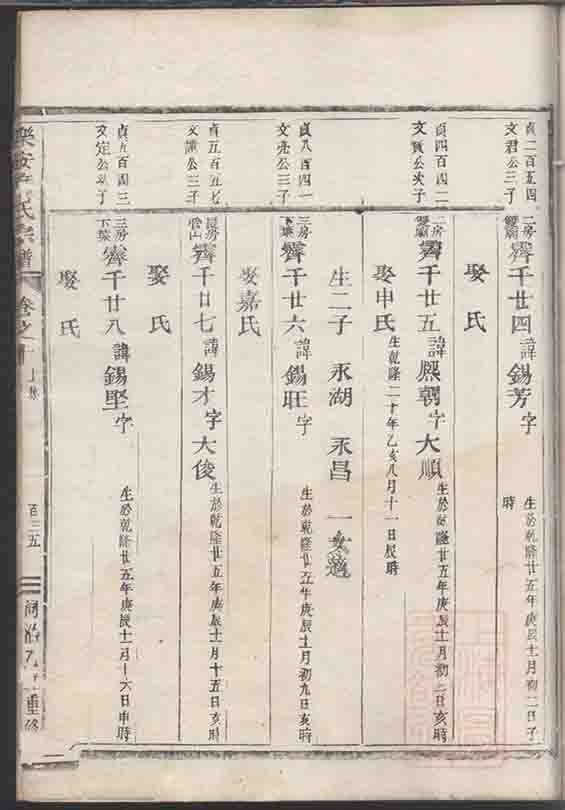 貞二百五四
文君公三子
二房
霽千廿四諱錫芳字
生於乾隆廿五年庚辰十一月初二日子
時
娶氏
貞四百四二
文質公次子
二房
霽千廿五諱熙朝字大順
生於乾隆廿五年庚辰十一月初二日亥時
娶申氏
生乾隆二十年乙亥八月十一日辰時
生二子 永湖 永昌 一女適
貞八百四一
文亮公三子
三房
下葉
霽千廿六諱錫旺字
生於乾隆廿五年庚辰十一月初九日亥時
娶嘉氏
貞五百五七
文公三子
霽千廿七諱錫才字大俊
生於乾隆廿五年庚辰十一月十五日亥時
娶氏
貞九百四三
文定公次子
三房
下葉
霽千廿八諱錫堅字
生於乾隆廿五年庚辰十一月十六日申時
娶氏
樂安 氏宗譜
卷之十
百三五
同治九年重修